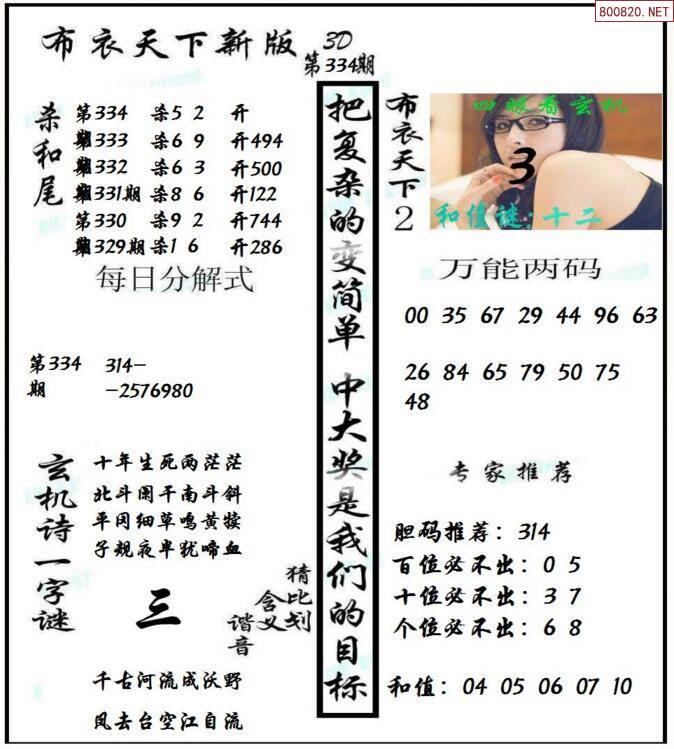 800820.NET
布衣天下新版 3D
第334期
杀和尾
第334 杀5 2 开
期333 杀6 9 开494
期332 杀6 3 开500
期331期 杀8 6 开122
第330 杀9 2 开744
期329期 杀1 6 开286
每日分解式
第334期 314-
-2576980
玄机诗一字谜
十年生死两茫茫
北斗阑干南斗斜
平冈细草鸣黄犊
子规夜半犹啼血
三
猜比划
含义
谐音
千古河流成沃野
凤去台空江自流
把复杂的变简单 中大奖是我们的目标
布衣天下2
四眼看玄机
3
和值谜:十二
万能两码
00 35 67 29 44 96 63
26 84 65 79 50 75
48
专家推荐
胆码推荐:314
百位必不出:0 5
十位必不出:3 7
个位必不出:6 8
和值:04 05 06 07 10